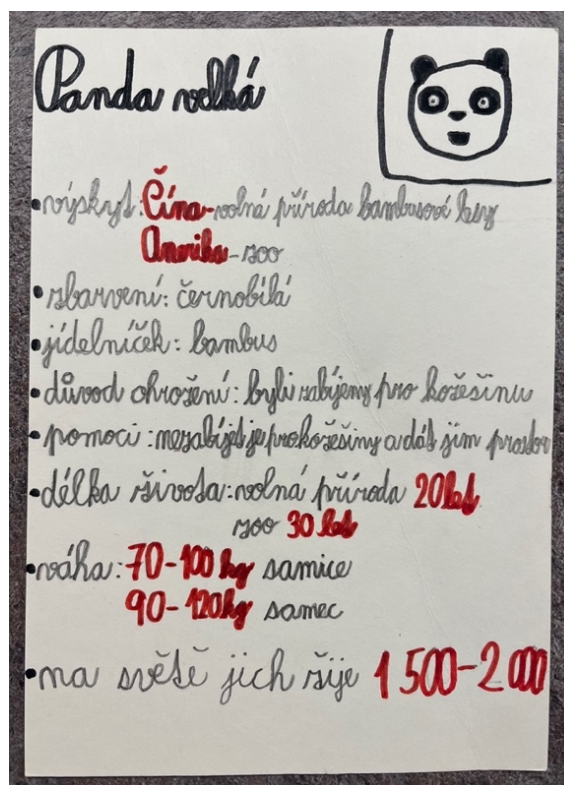 Panda velká
•výskyt:Čína-volná příroda bambusové lesy
Amerika-zoo
•zbarvení: černobílá
•jídelníček: bambus
•důvod ohrožení: byli zabíjeny pro kožešinu
•pomoci: nezabíjet je pro kožešiny a dát jim prostor
•délka života: volná příroda 20 let
zoo 30 let
•váha: 70-100 kg samice
90-120kg samec
•na světě jich žije 1 500-2 000